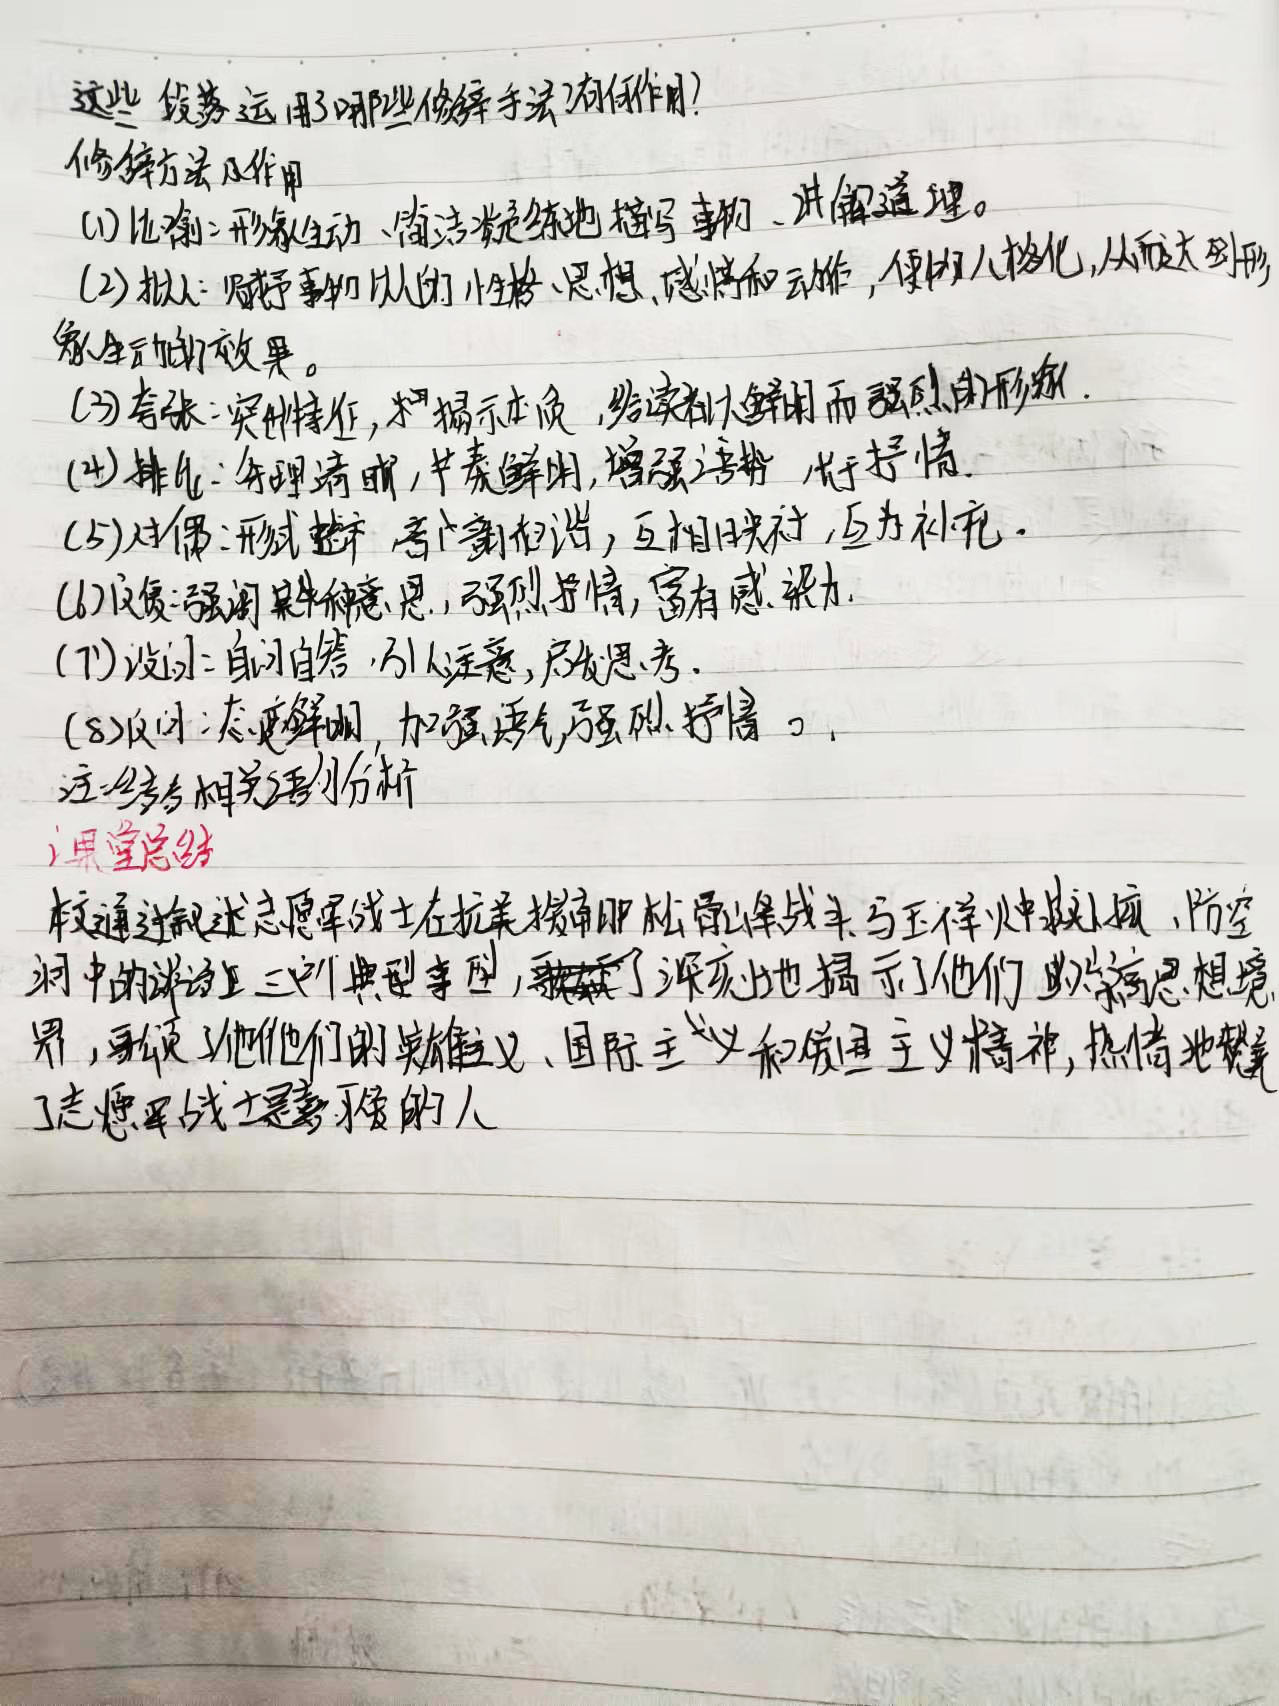 这些段落运用了哪些修辞手法?有何作用?
修辞方法及作用
(1)比喻:形象生动、简洁凝练地描写事物、讲解道理。
(2)拟人:赋予事物以人的性格、思想、感情和动作,使物人格化,从而达到形
象生动的效果。
(3)夸张:突出特征,揭示本质,给读者以鲜明而强烈的形象.
(4)排比:条理清晰,节奏鲜明,增强语势,长于抒情.
(5)对偶:形式整齐,音韵和谐,互相映衬,互为补充.
(6)反复:强调某种意思,强烈抒情,富有感染力.
(7)设问:自问自答,引人注意,启发思考.
(8)反问:态度鲜明,加强语气,强烈抒情。
注:结合相关语句分析
课堂总结
本文通过叙述志愿军战士在抗美援朝中松骨峰战斗、马玉祥火中救小孩、防空
洞中的谈话三个典型事,了深刻地揭示了他们崇高思想境
界,歌颂了他他们的英雄主义、国际主义和爱国主义精神,热情地赞美
了志愿军战士是最可爱的人